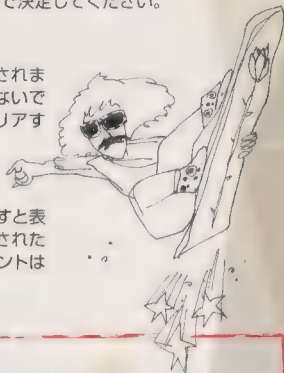 で決定してください。
されま
ないで
リアす
すと表
された
ントは